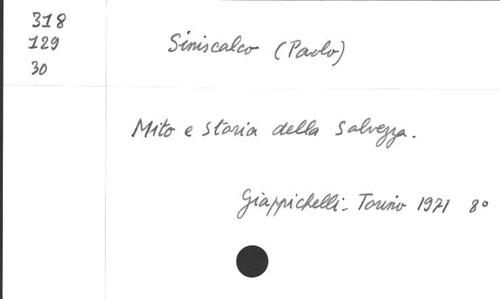 318
129
30
Siniscalco (Paolo)
Mito e storia della salvezza.
Giappichelli - Torino 1971 8°